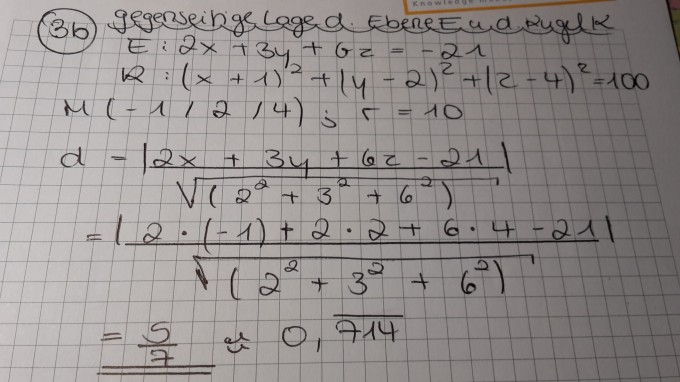 Knowledge
3b gegenseitige Lage d. Ebene E u. d. Kugel K
E : 2x + 3y + 6z = -21
K : (x + 1)² + (y - 2)² + (z - 4)² = 100
M (-1 / 2 / 4) ; r = 10
d = |2x + 3y + 6z - 21|
√(2² + 3² + 6²)
= | 2 · (-1) + 2 · 2 + 6 · 4 - 21|
√(2² + 3² + 6²)
= 5/7 ≈ 0,714